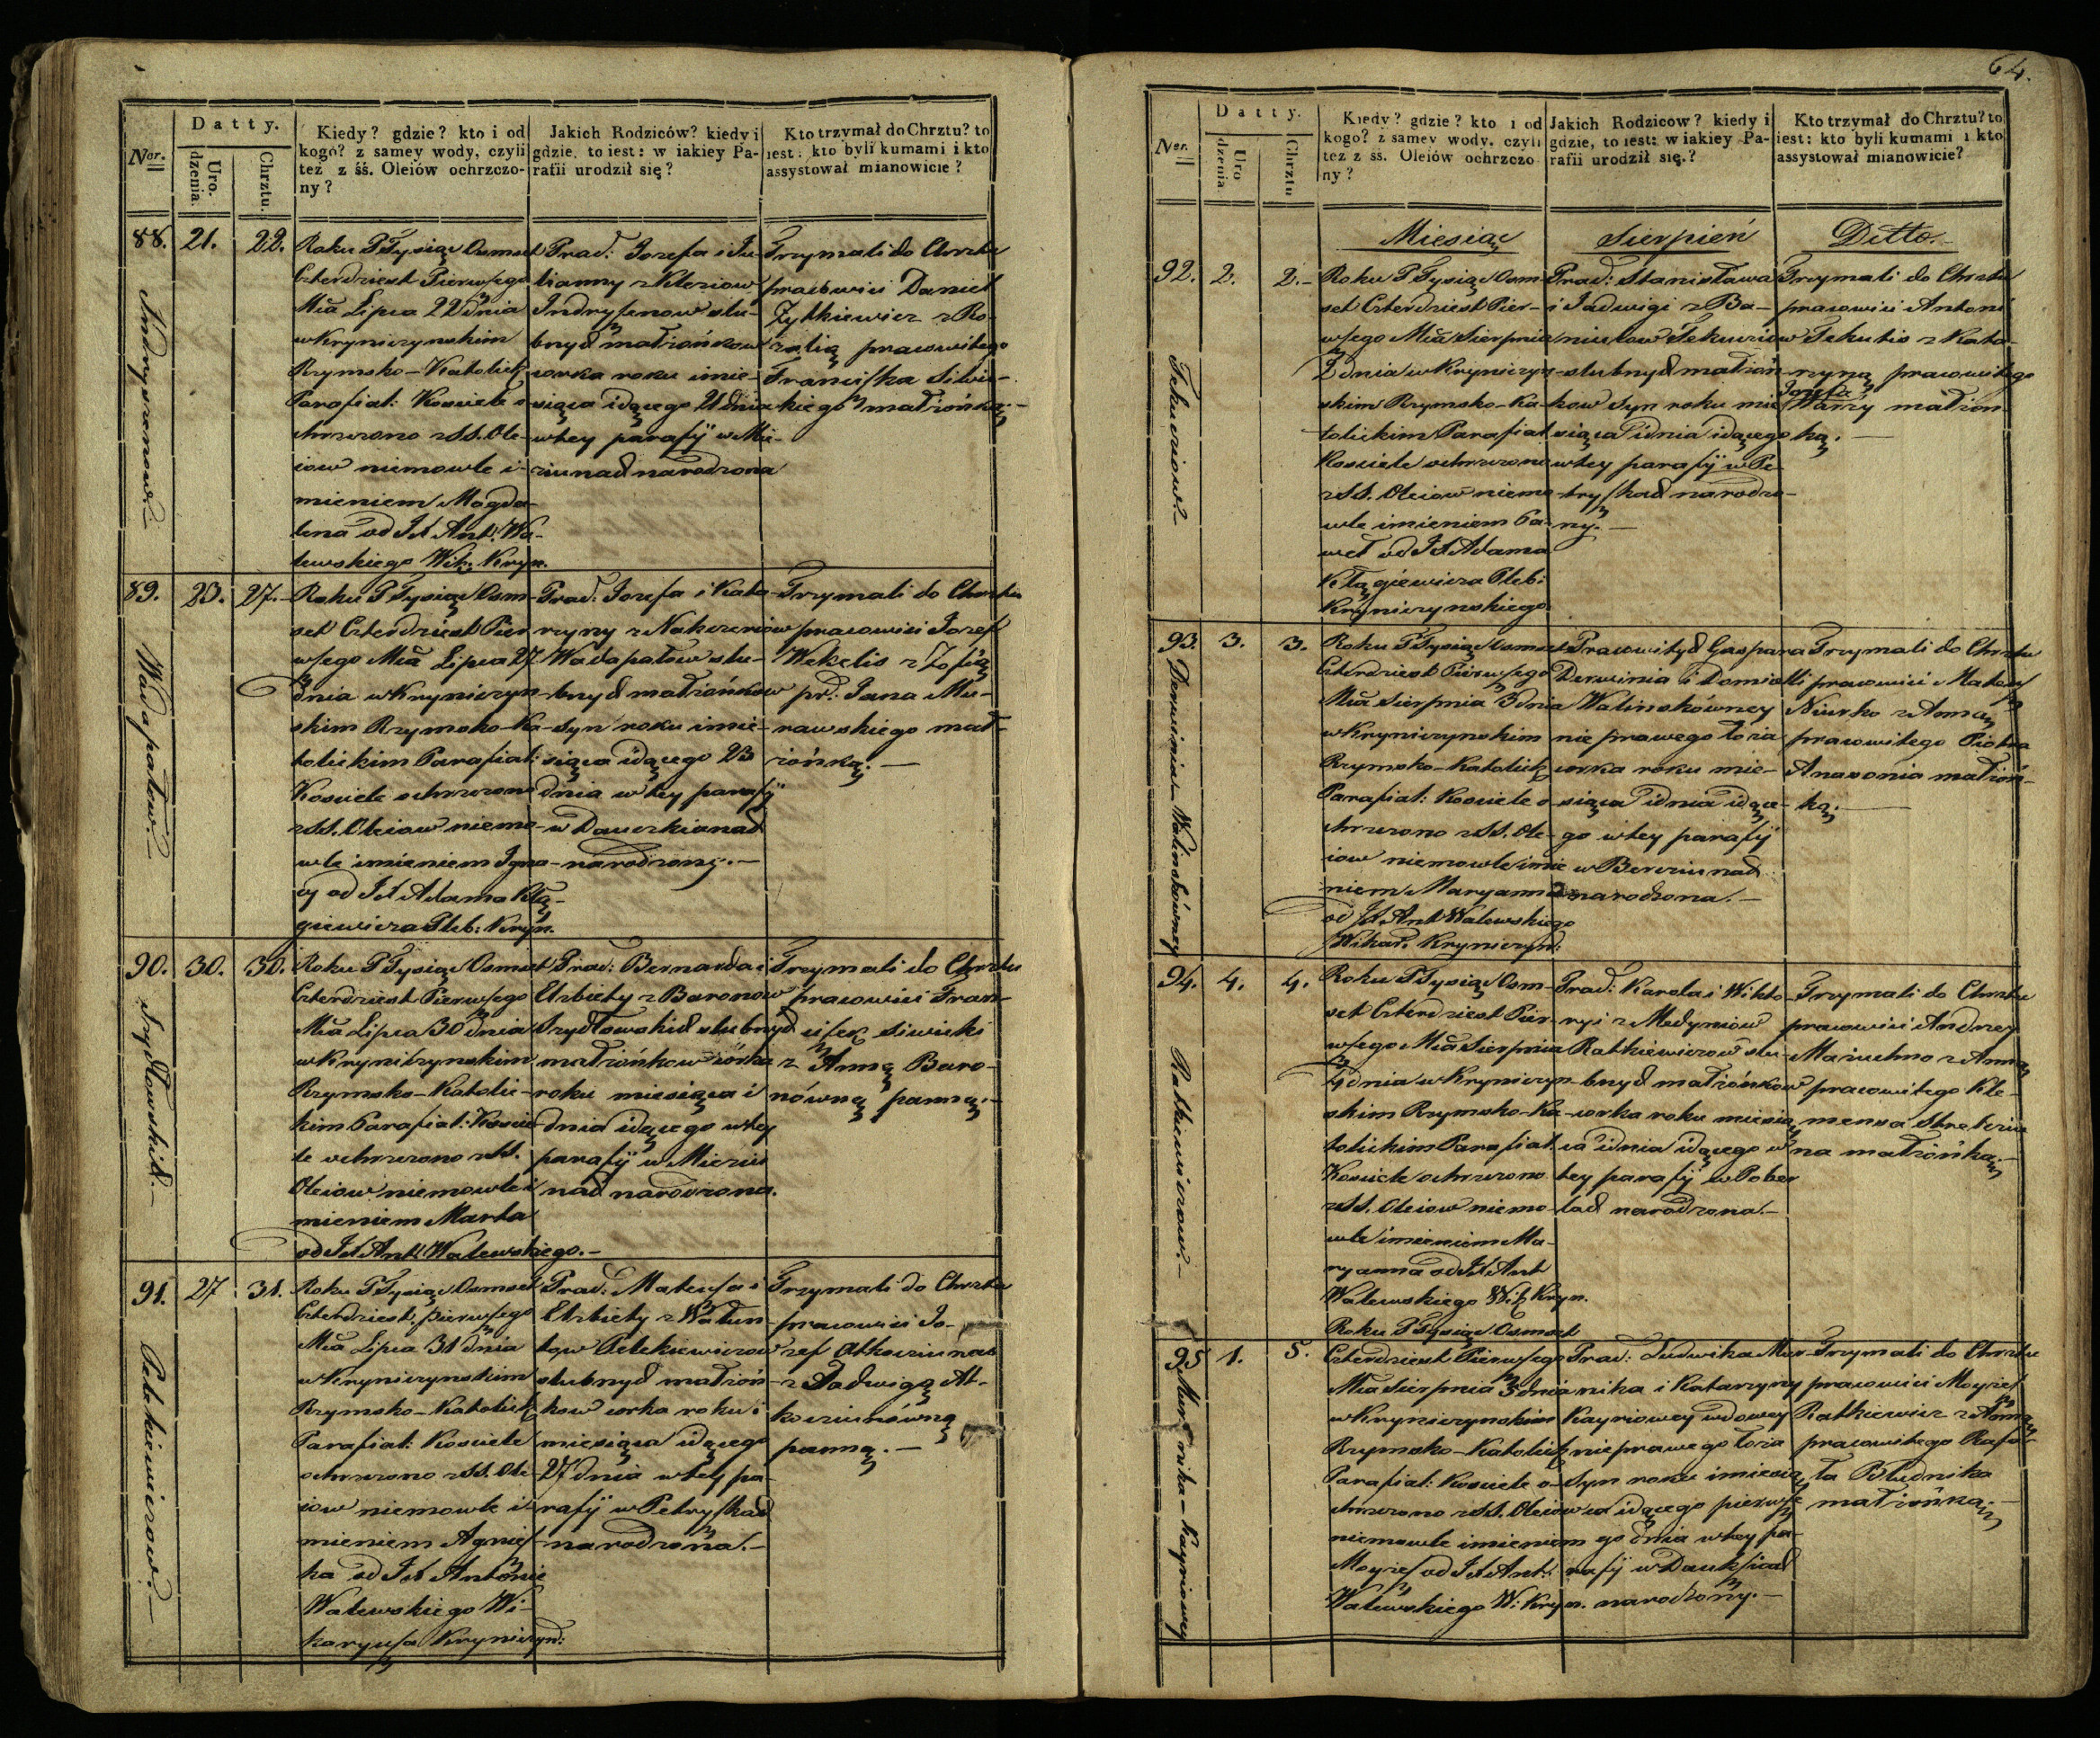 64.
Datty.
Nor.
Uro.
dzenia.
Chrztu.
Kiedy? gdzie? kto i od
kogo? z samey wody, czyli
też z śś. Oleiów ochrzczo-
ny?
Jakich Rodziców? kiedy i
gdzie, to iest: w iakiey Pa-
rafii urodził się?
Kto trzymał do Chrztu? to
iest: kto byli kumami i kto
assystował mianowicie?
88. 21. 22.
Indryszenow
Roku P Tysiąc Osmset
Czterdziest Pierwszego
Mca Lipca 22 dnia
w Kryniczynskim
Rzymsko-Katolick
Parafial: Kościele o
chrzczono z SS. Ole-
iow niemowle i-
mieniem Magda-
lena od JX Ant: Wa-
lewskiego Wik: Kryn.
Prac: Jozefa i Ju-
lianny z
Indryszenow slu-
bnych małżonkow
corka roku i mie-
siąca idącego 21 dnia
w tey parafij w Mi-
narodzona
Trzymali do Chrztu
pracowici Daniel
Zytkiewicz z Ro-
zalią pracowitego
Franciszka Siwic-
kiego małżonką.
89. 23. 27.
Wadapałow
Roku P Tysiąc Osm-
set Czterdziest Pier
wszego Mca Lipca 27
dnia w Kryniczyn-
skim Rzymsko-Ka-
tolickim Parafial:
Kościele ochrzczono
z SS. Oleiow niemo-
wle imieniem Igna-
cy od JX Adama Kłą-
giewicza Pleb: Kryn.
Prac: Jozefa i Kata-
rzyny z
Wadapałow slu-
bnych małżonkow
syn roku i mie-
siąca idącego 23
dnia w tey parafij
w
narodzony.
Trzymali do Chrztu
pracowici Jozef
Wekelis z Zofią
pr: Jana Mu-
rawskiego mał-
żonką.
90. 30. 30.
Szydłowskich
Roku P Tysiąc Osmset
Czterdziest Pierwszego
Mca Lipca 30 dnia
w Krynicznskim
Rzymsko-Katolic-
kim Parafial: Koście
le ochrzczono z SS.
Oleiow niemowle i
mieniem Marta
od JX Ant: Walewskiego.
Prac: Bernarda i
Elzbiety z Baronow
Szydłowskich slubnych
małżonkow córka
roku miesiąca i
dnia idącego w tey
parafij w
narodzona.
Trzymali do Chrztu
pracowici Fran-
ciszek Siwicki
z Anną Baro-
nówną panną.
91. 27 31.
Petekiewiczow
Roku P Tysiąc Osmset
Czterdziest pierwszego
Mca Lipca 31 dnia
w Kryniczynskim
Rzymsko-Katolick
Parafial: Kościele
ochrzczono z SS. Ole-
iow niemowle i-
mieniem Agniesz-
ka od JX Antonie
Walewskiego Wi-
karyusza Kryniczyn:
Prac: Mateusza i
Elzbiety z
Petekiewiczow
slubnych małżon-
kow corka roku i
miesiąca idącego
27 dnia w tey pa-
rafij w
narodzona.
Trzymali do Chrztu
pracowici Jo-
zef
z Jadwigą
panną.
Datty.
Ner.
Uro
dzenia.
Chrztu
Kiedy? gdzie? kto i od
kogo? z samey wody, czyli
też z śś. Oleiów ochrzczo-
ny?
Jakich Rodziców? kiedy i
gdzie, to iest: w iakiey Pa-
rafii urodził się?
Kto trzymał do Chrztu? to
iest: kto byli kumami i kto
assystował mianowicie?
Miesiąc Sierpień Ditto.
92. 2. 2.
Tekuciow
Roku P Tysiąc Osm-
set Czterdziest Pier-
wszego Mca Sierpnia
2 dnia w Kryniczyn-
skim Rzymsko-Ka-
tolickim Parafial
Kościele ochrzczono
z SS. Oleiow niemo
wle imieniem Pa-
weł od JX Adama
Kłągiewicza Pleb:
Kryniczynskiego
Prac: Stanisława
i Jadwigi z
slubnych małżon-
kow syn roku mie
siąca i dnia idącego
w tey parafij w
narodzo-
ny.
Trzymali do Chrztu
pracowici Antoni
z Kata-
rzyną pracowitego
Jozefa
małżon-
ką.
93. 3. 3.
Derwinia Walinskówney
Roku P Tysiąc Osmset
Czterdziest Pierwszego
Mca Sierpnia 3 dnia
w Krynicznskim
Rzymsko-Katolick
Parafial: Kościele o-
chrzczono z SS. Ole-
iow niemowle imie
niem Maryanna
od JX Ant Walewskiego
Wikar. Kryniczyn:
Pracowitych Gaspara
Derwinia i Domicelli
Walinskówney
nie prawego łoża
corka roku mie-
siąca i dnia idące-
go w tey parafij
w
narodzona.
Trzymali do Chrztu
pracowici Mateusz
z Anną
pracowitego Piotra
małżon-
ką.
94. 4. 4.
Ratkiewiczow
Roku P Tysiąc Osm-
set Czterdziest Pier-
wszego Mca Sierpnia
4 dnia w Kryniczyn-
skim Rzymsko-Ka-
tolickim Parafial
Kościele ochrzczono
z SS. Oleiow niemo-
wle imieniem Ma-
ryanna od JX Ant
Walewskiego Wik Kryn.
Prac: Karola i Wikto-
ryi z Medyniow
Ratkiewiczow slu-
bnych małżonkow
corka roku miesią
ca i dnia idącego w
tey parafij w
narodzona.
Trzymali do Chrztu
pracowici Andrzey
z Anną
pracowitego Kle-
mensa
małżonką.
95 1. 5.
Murnika Kayriowey
Roku P Tysiąc Osmset
Czterdziest Pierwszego
Mca Sierpnia 5 dnia
w Krynicznskim
Rzymsko-Katolick
Parafial: Kościele o-
chrzczono z SS. Oleiow
niemowle imieniem
Moyzesz od JX Ant:
Walewskiego W: Kryn.
Prac: Ludwika Mur-
nika i Katarzyny
Kayriowey wdowey
nie prawego łoża
syn roku i miesią
ca idącego pierwsze
go dnia w tey pa-
rafij w
narodzony.
Trzymali do Chrztu
pracowici Moyzesz
Ratkiewicz z Anną
pracowitego Rafa-
ła Błudnika
małżonką.